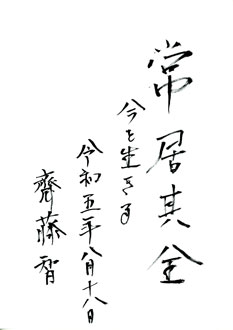 常居其全
今を生きる
令和五年八月十八日
齋藤智